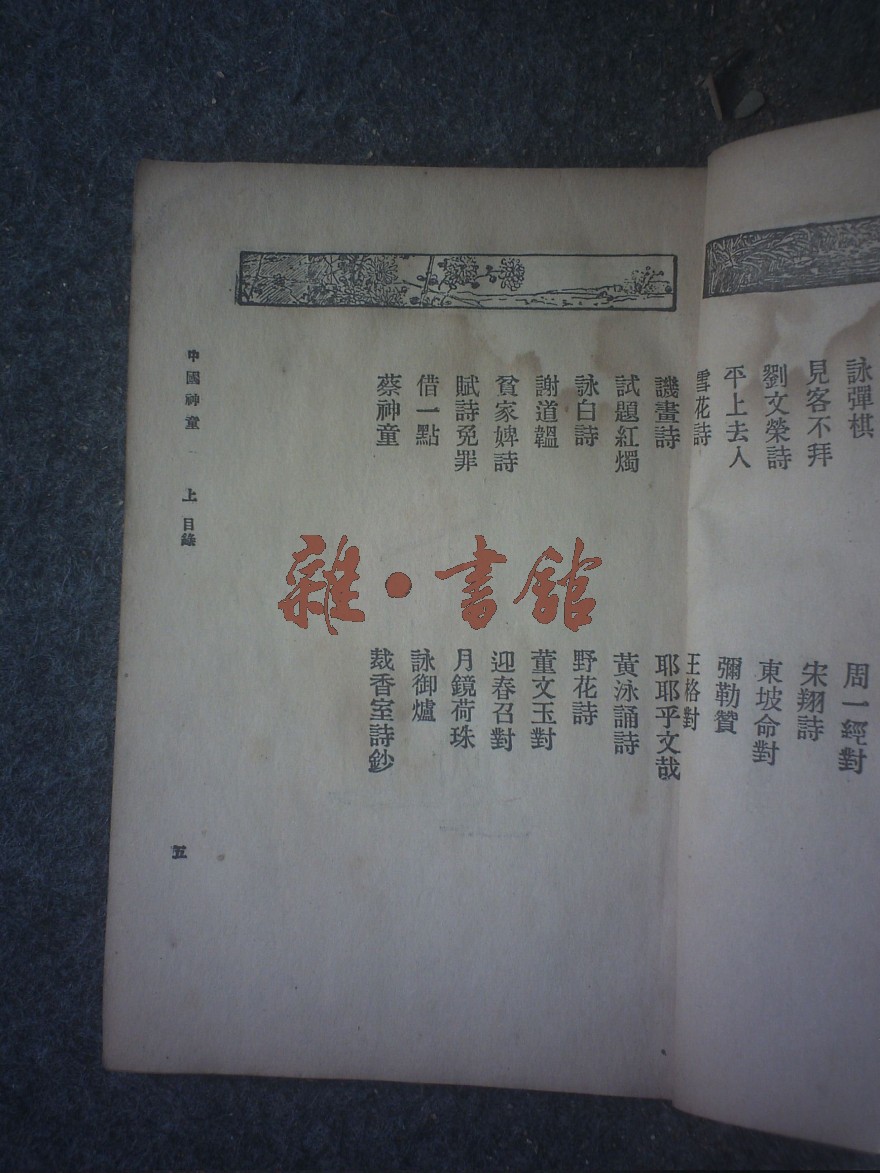 詠彈棋
見客不拜
劉文榮詩
平上去入
周一經對
宋翔詩
東坡命對
彌勒贊
雪花詩
譏畫詩
試題紅燭
詠白詩
謝道韞
貧家婢詩
賦詩免罪
借一點
蔡神童
王格對
耶耶乎文哉
黃泳誦詩
野花詩
董文玉對
迎春召對
月鏡荷珠
詠御爐
裁香室詩鈔
中國神童 上 目錄
五
雜·書館